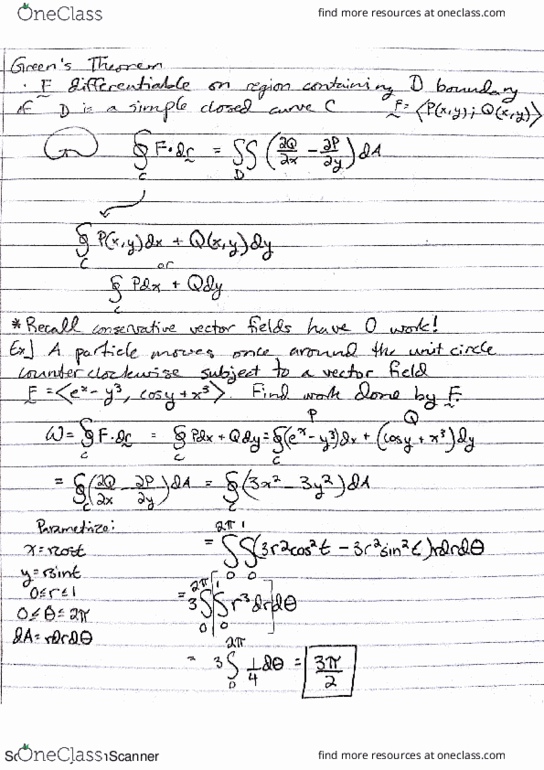 OneClass find more resources at oneclass.com
Green's Theorem
· F differentiable on region containing D boundary
of D is a simple closed curve C F = ⟨P(x,y); Q(x,y)⟩
∮_C F·dr = ∬_D (∂Q/∂x - ∂P/∂y) dA
∮_C P(x,y)dx + Q(x,y)dy
or
∮_C Pdx + Qdy
*Recall conservative vector fields have 0 work!
Ex] A particle moves once around the unit circle
counterclockwise subject to a vector field
F = ⟨e^x - y^3, cosy + x^3⟩. Find work done by F.
P Q
W = ∮_C F·dr = ∮_C Pdx + Qdy = ∮_C (e^x - y^3)dx + (cosy + x^3)dy
= ∮_C (∂Q/∂x - ∂P/∂y) dA = ∮_C (3x^2 - 3y^2) dA
Parametrize:
x = rcost
y = rsint
0 ≤ r ≤ 1
0 ≤ θ ≤ 2π
dA = rdrdθ
= ∫_0^2π ∫_0^1 (3r^2cos^2t - 3r^2sin^2t) rdrdθ
= 3 ∫_0^2π [∫_0^1 r^3 dr] dθ
= 3 ∫_0^2π 1/4 dθ = 3π/2
OneClass Scanner find more resources at oneclass.com